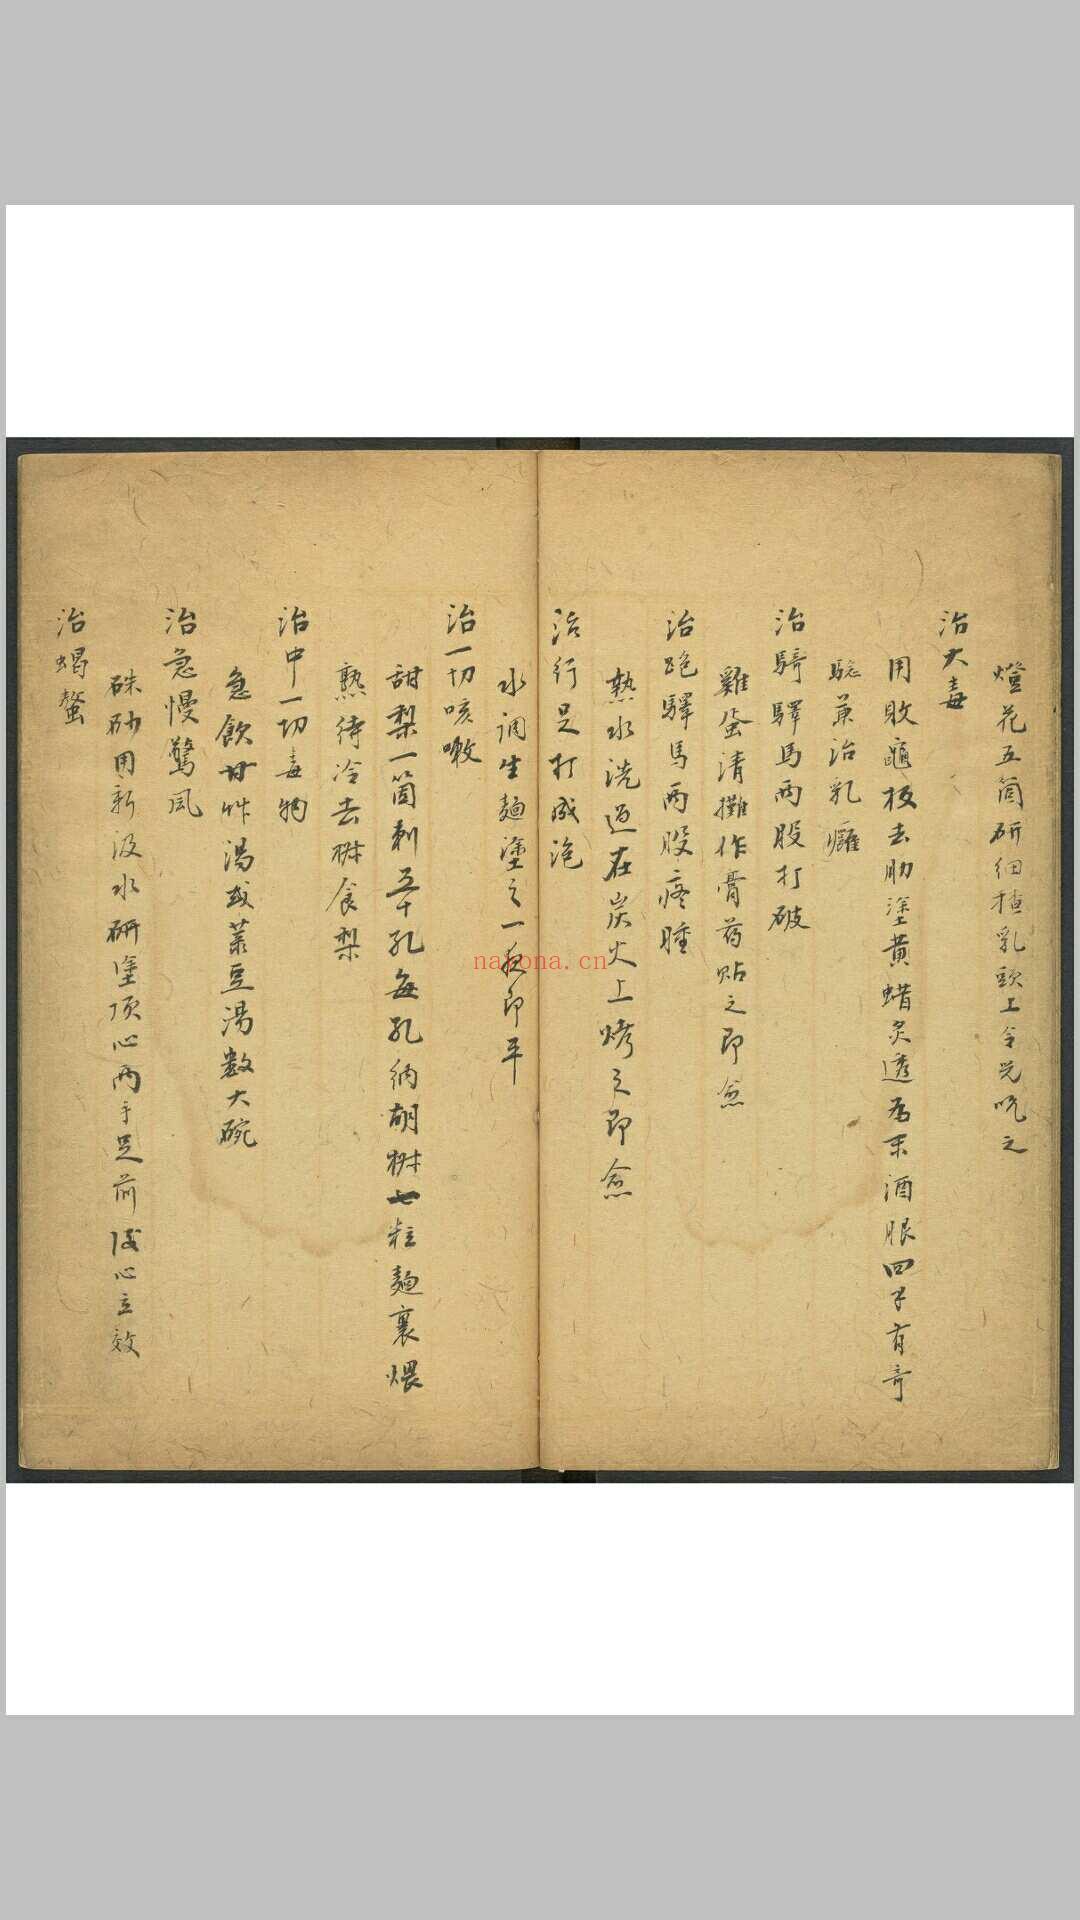 燈花五箇研細搽乳頭上令兒吮之
治大毒
用敗龜板去肋塗黃蜡炙透為末酒服四子有奇
驗兼治乳癰
治騎驛馬兩股打破
雞蛋清攤作膏药貼之即愈
治跑驛馬兩股疼腫
熟水洗過在炭火上烤之即愈
治行足打成泡
水調生麵塗之一夜即平
治一切咳嗽
甜梨一箇刺五十孔每孔納胡椒七粒麵裹煨
熟待冷去椒食梨
治中一切毒物
急飲甘艸湯或菉豆湯數大碗
治急慢驚風
硃砂用新汲水研塗頂心兩手足前後心立效
治蝎螫
nakona.cn